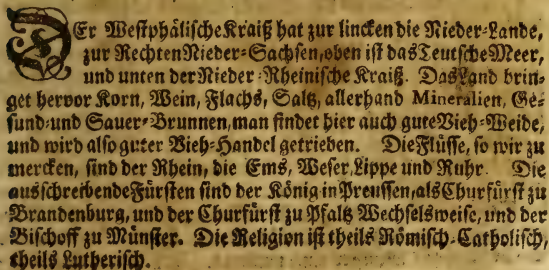 DEr Westphälische Kraiß hat zur lincken die Nieder-Lande,
zur Rechten Nieder-Sachsen, oben ist das Teutsche Meer,
und unten der Nieder-Rheinische Kraiß. Das Land brin-
get hervor Korn, Wein, Flachs, Saltz, allerhand Mineralien, Ge-
sund- und Sauer-Brunnen, man findet hier auch gute Vieh-Weide,
und wird also guter Vieh-Handel getrieben. Die Flüsse, so wir zu
mercken, sind der Rhein, die Ems, Weser, Lippe und Ruhr. Die
ausschreibende Fürsten sind der König in Preussen, als Churfürst zu
Brandenburg, und der Churfürst zu Pfaltz Wechselsweise, und der
Bischoff zu Münster. Die Religion ist theils Römisch-Catholisch,
theils Lutherisch.